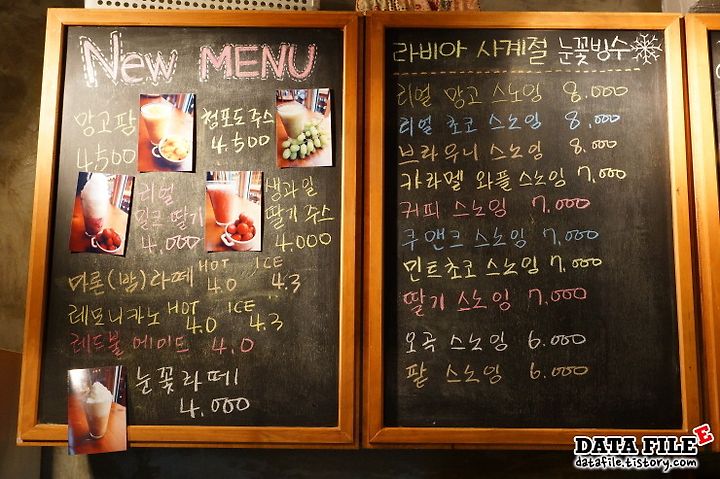 New MENU
망고팜
4.500
청포도주스
4.500
리얼
밀크 딸기
4.000
생과일
딸기 주스
4.000
마론(밤)라떼 HOT 4.0 ICE 4.3
레모니카노 HOT 4.0 ICE 4.3
레드불 에이드 4.0
눈꽃라떼
4.000
라비아 사계절 눈꽃빙수
리얼 망고 스노잉 8.000
리얼 초코 스노잉 8.000
브라우니 스노잉 8.000
카라멜 와플스노잉 7.000
커피 스노잉 7.000
쿠앤크 스노잉 7.000
민트초코 스노잉 7.000
딸기 스노잉 7.000
오곡 스노잉 6.000
팥 스노잉 6.000
DATA FILE E
datafile.tistory.com